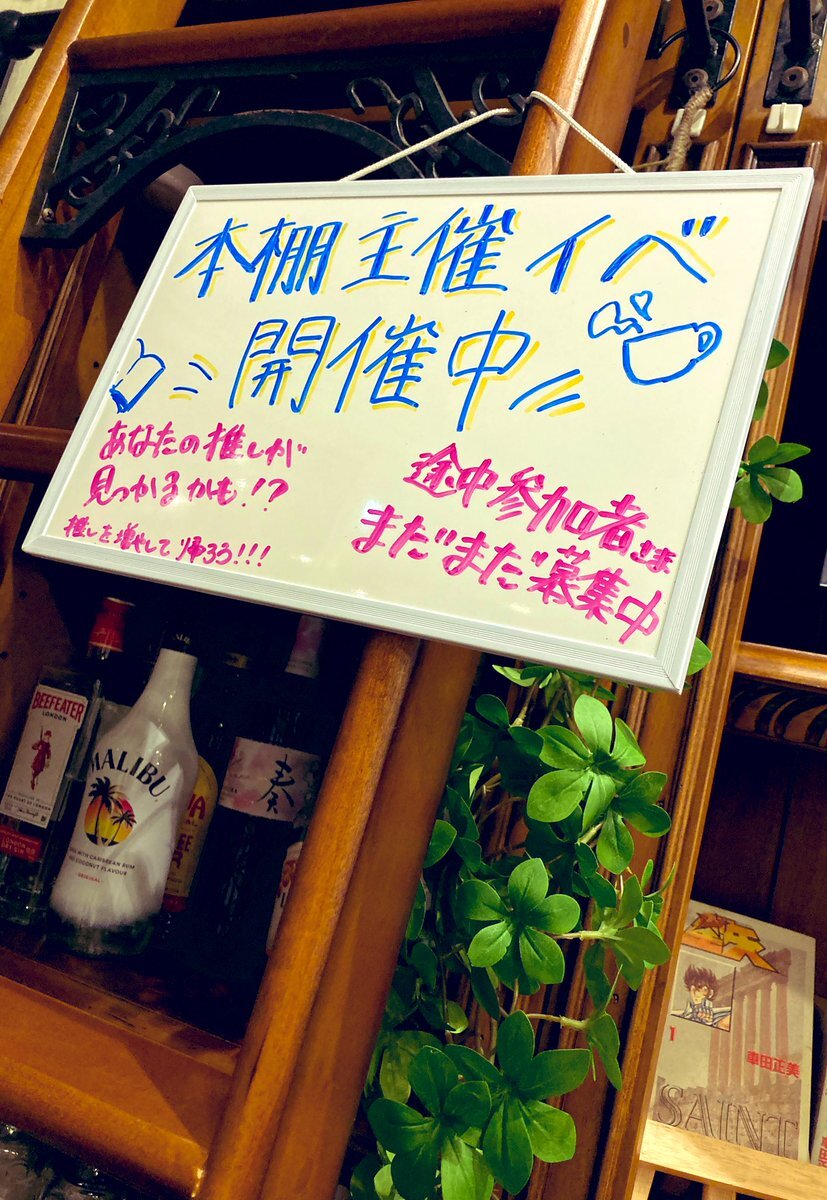 本棚主催イベ
開催中
あなたの推しが
見つかるかも!?
推しを増やして帰ろう!!!
途中参加者さま
まだまだ募集中
BEEFEATER
LONDON
LONDON
DRY GIN
MALIBU
WITH CARIBBEAN RUM
AND COCONUT FLAVOUR
ORIGINAL
奏
矢
1
車田正美
SAINT